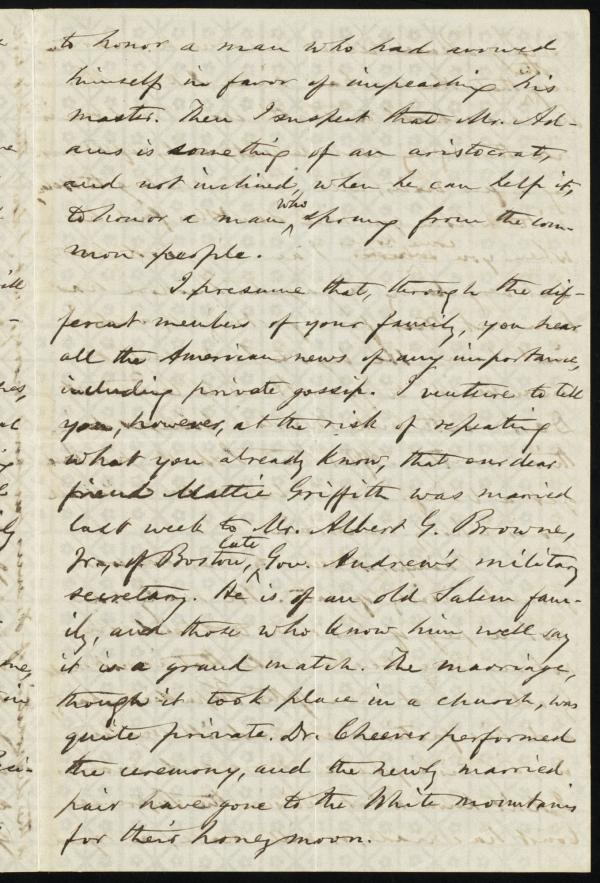 to honor a man who had avowed
himself in favor of impeaching his
master. Then I suspect that Mr. Ad-
ams is something of an aristocrat,
and not inclined, when he can help it,
to honor a man who sprung from the com-
mon people.
I presume that, through the dif-
ferent members of your family, you hear
all the American news of any importance,
including private gossip. I venture to tell
you, however, at the risk of repeating
what you already know, that our dear
friend Mattie Griffith was married
last week to Mr. Albert G. Browne,
Jr., of Boston, late Gov. Andrew's military
secretary. He is of an old Salem fam-
ily, and those who know him well say
it is a grand match. The marriage,
though it took place in a church, was
quite private. Dr. Cheever performed
the ceremony, and the newly married
pair have gone to the White mountains
for their honeymoon.